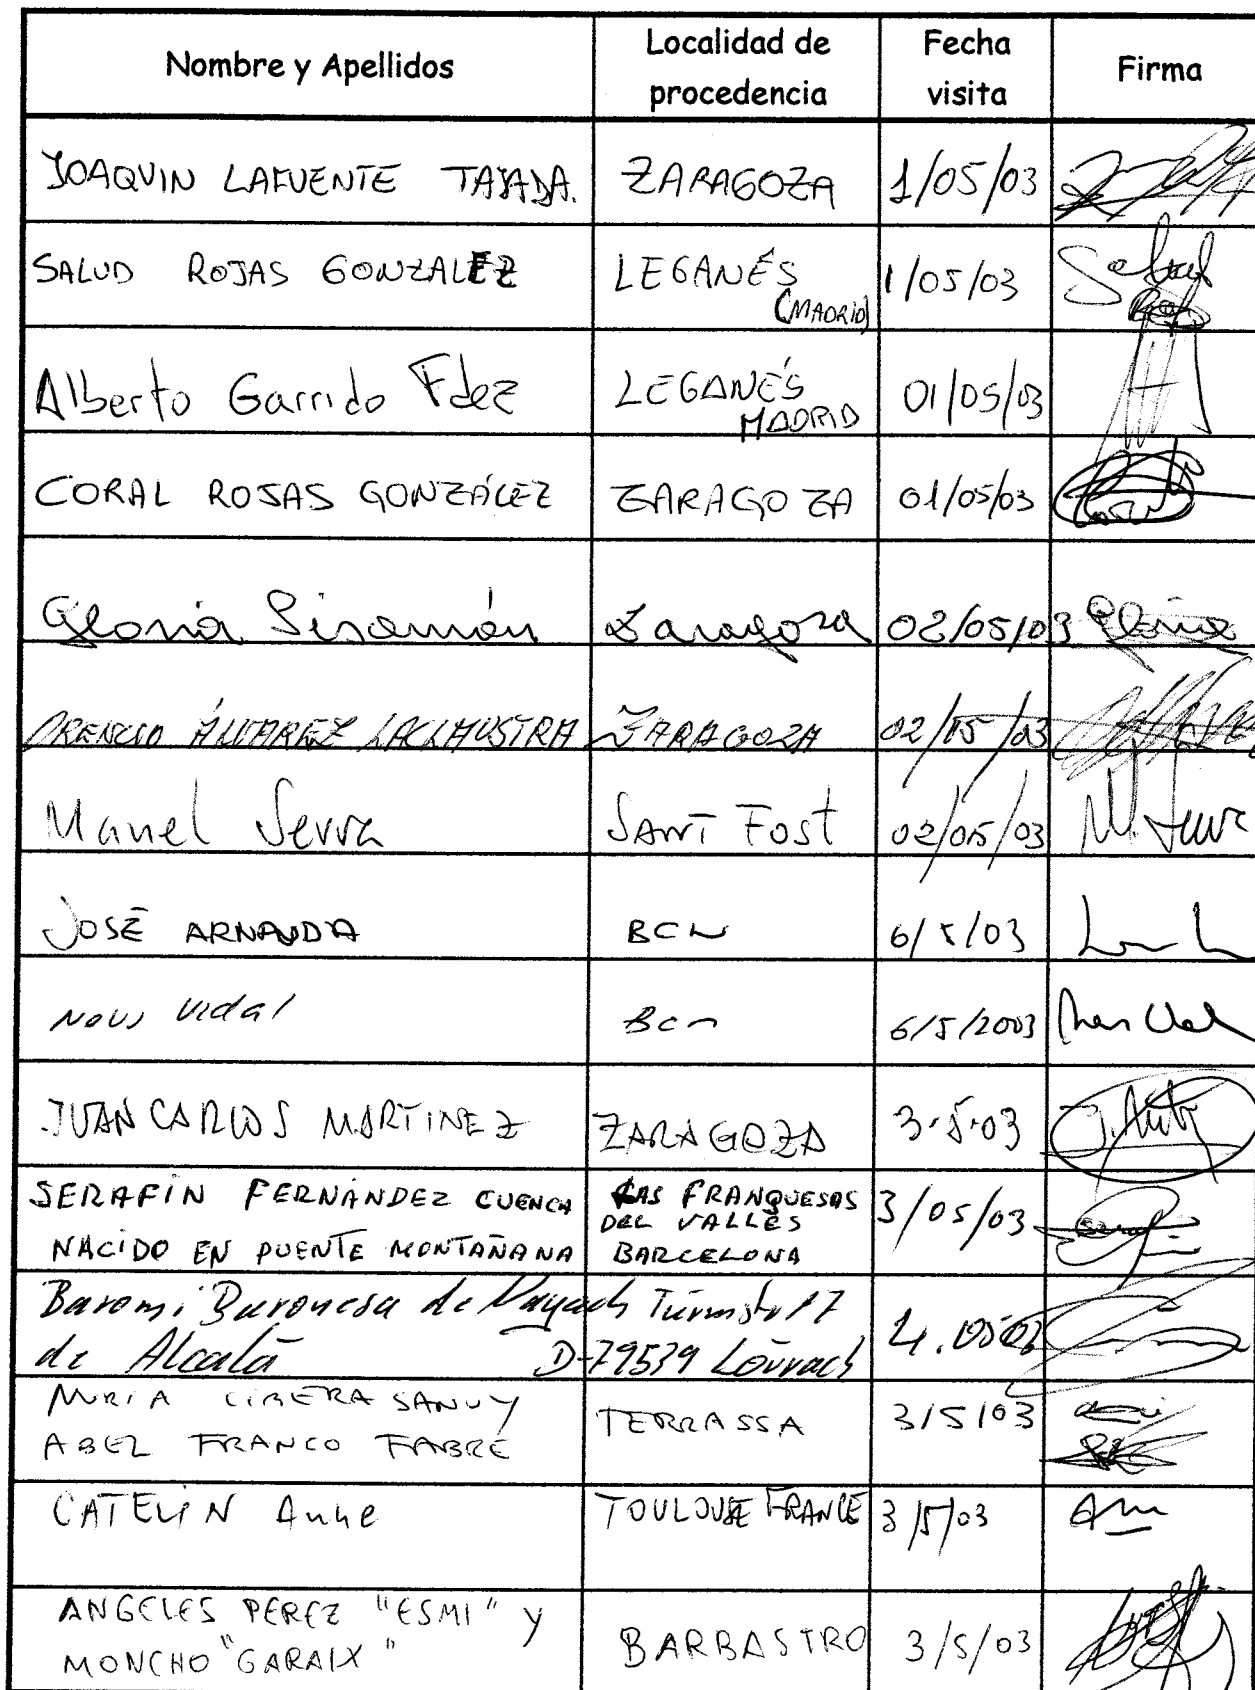 Nombre y Apellidos Localidad de procedencia Fecha visita Firma
JOAQUIN LAFUENTE TAJADA. ZARAGOZA 1/05/03
SALUD ROJAS GONZALEZ LEGANÉS (MADRID) 1/05/03 Salud
Alberto Garrido Fdez LEGANÉS MADRID 01/05/03
CORAL ROJAS GONZÁLEZ ZARAGOZA 01/05/03
Gloria Sisamón Zaragoza 02/05/03 Gloria
ORENCIO ÁLVAREZ LACLAUSTRA ZARAGOZA 02/05/03
Manel Serra SANT FOST 02/05/03 M. Serra
JOSÉ ARNANDA BCN 6/5/03
Nous Vidal Bcn 6/5/2003
JUAN CARLOS MARTINEZ ZARAGOZA 3·5·03
SERAFIN FERNÁNDEZ CUENCA LAS FRANQUESAS DEL VALLÉS 3/05/03
NACIDO EN PUENTE MONTAÑANA BARCELONA
Baron i Baronesa de Mayach 17
de Alcalá D-79539 Lörrach 4.0503
NURIA CIBERA SANUY TERRASSA 3/5/03
ABEL FRANCO FABRE
CATELIN Anne TOULOUSE FRANCE 3/5/03
ANGELES PEREZ "ESMI" Y BARBASTRO 3/5/03
MONCHO "GARAIX"